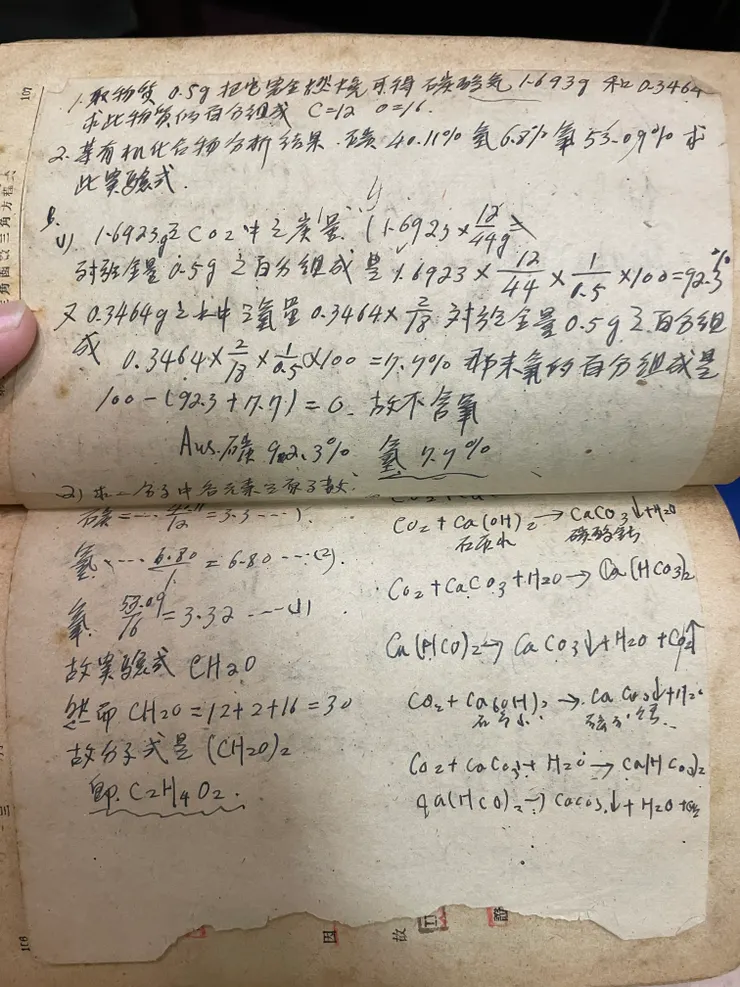 1. 取物质 0.5g 把它完全燃烧可得碳酸气 1.693g 和 0.3464
求此物质的百分组成 C=12 O=16.
2. 某有机化合物分析结果. 碳 40.11% 氢 6.8% 氧 53.09% 求
此实验式.
(1) 1.6923g之CO2中之炭量. (1.6923×12/44g
对於全量 0.5g 之百分组成是 1.6923×12/44×1/0.5×100=92.3%
又 0.3464g之水中之氢量 0.3464×2/18 对於全量 0.5g之百分组
成 0.3464×2/18×1/0.5×100=7.7% 那末氧的百分组成是
100-(92.3+7.7)=0. 故不含氧
Aus. 碳 92.3% 氢 7.7%
2) 求一分子中各元素之原子数.
碳=
=3.3……1).
氢…… 6.80/1=6.80……(2).
氧. 53.09/16=3.32……(1)
故实验式 CH2O
然而 CH2O=12+2+16=30
故分子式是 (CH2O)2
即. C2H4O2.
CO2+Ca(OH)2→CaCO3↓+H2O
石灰水 碳酸钙
CO2+CaCO3+H2O→Ca(HCO3)2
Ca(HCO)2→CaCO3↓+H2O+CO2↑
CO2+Ca(OH)2→CaCO3↓+H2O
石灰水
CO2+CaCO3+H2O→Ca(HCO3)2
Ca(HCO)2→CaCO3↓+H2O+CO2
107
106
三角函数三角方程式
因
故